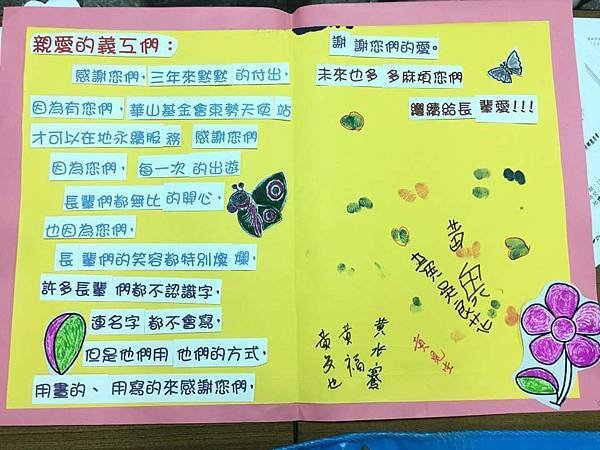 親愛的義工們：
感謝您們，三年來默默的付出，
因為有您們，華山基金會東勢天使站
才可以在地永續服務 感謝您們
因為您們，每一次的出遊
長輩們都無比的開心，
也因為您們，
長輩們的笑容都特別燦爛，
許多長輩們都不認識字，
連名字都不會寫，
但是他們用他們的方式，
用畫的、用寫的來感謝您們，
謝謝您們的愛。
未來也多多麻煩您們
繼續給長輩愛!!!
黃
黃
黃福